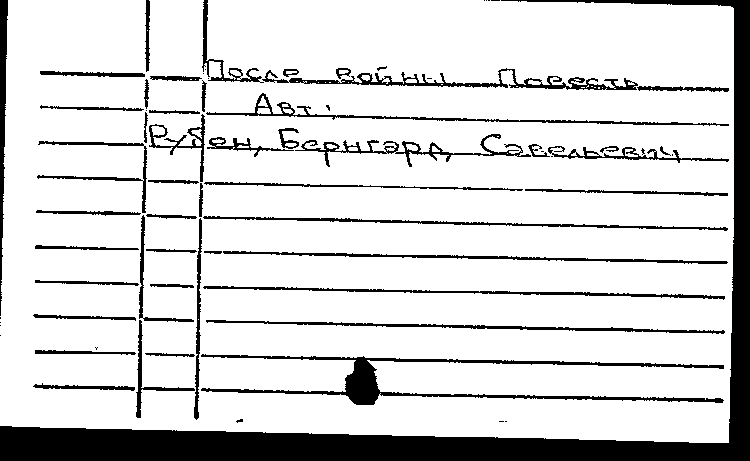 После войны Повесть
Авт.:
Рубен, Бернгард Савельевич